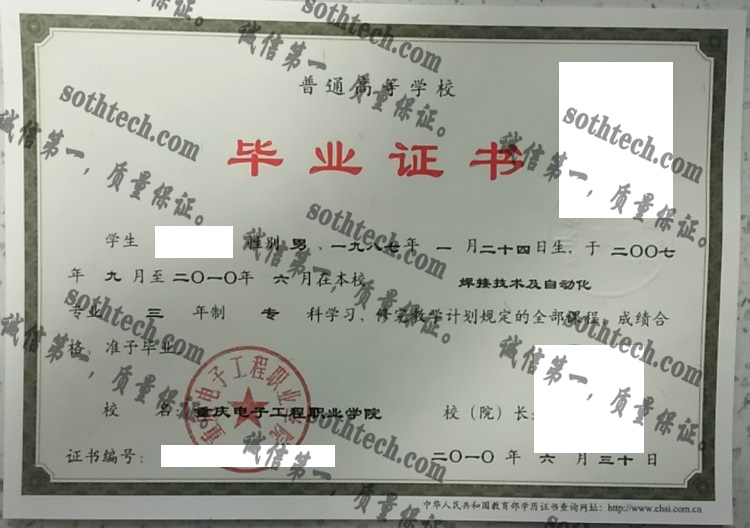 普通高等学校
毕业证书
学生 性别 男 、一九八七年 一 月二十四日生，于 二〇〇七
年 九 月至二〇一〇年 六 月在本校 焊接技术及自动化
专业 三 年制 专 科学习，修完教学计划规定的全部课程，成绩合
格，准予毕业
校 名 重庆电子工程职业学院 校（院）长：
证书编号： 二〇一〇 年 六 月三十日
中华人民共和国教育部学历证书查询网址：http://www.chsi.com.cn
重庆电子工程职业学院
sothtech.com
诚信第一，质量保证。
sothtech.com
诚信第一，质量保证。
sothtech.com
诚信第一，质量保证。
sothtech.com
诚信第一，质量保证。
sothtech.com
诚信第一，质量保证。
sothtech.com
诚信第一，质量保证。
sothtech.com
诚信第一，质量保证。